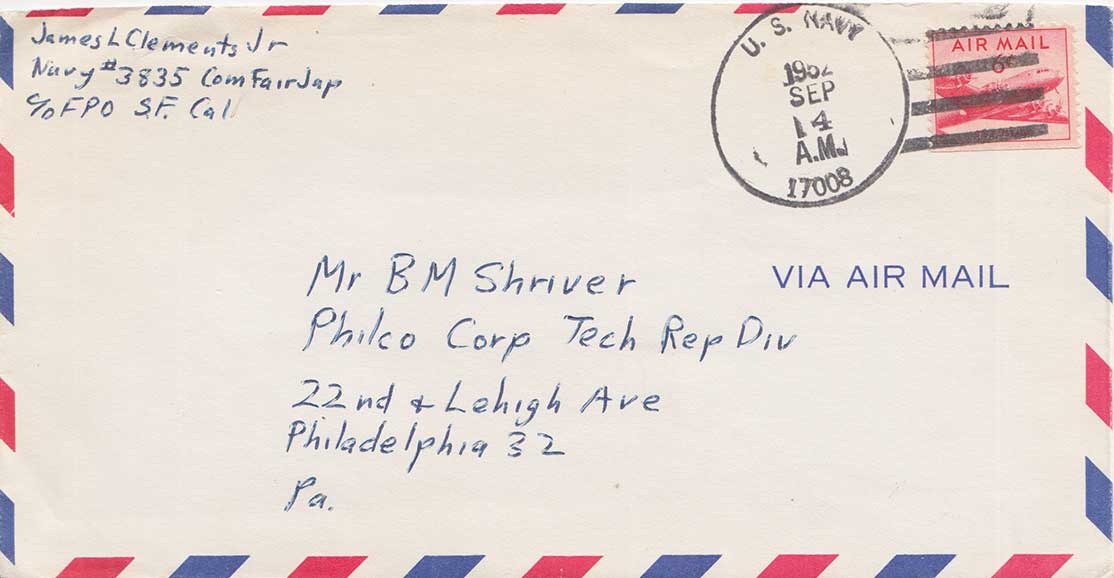 James L Clements Jr
Navy #3835 ComFairJap
c/o FPO S.F. Cal
U. S. NAVY
1952
SEP
14
A.M.
17008
AIR MAIL
6¢
VIA AIR MAIL
Mr B M Shriver
Philco Corp Tech Rep Div
22nd & Lehigh Ave
Philadelphia 32
Pa.